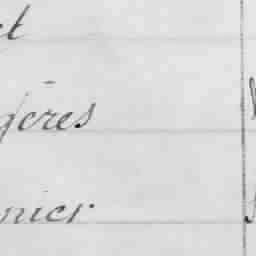 et
gères
nier